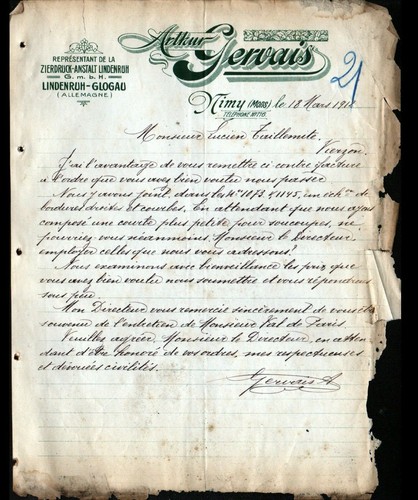 Arthur Gervais
REPRÉSENTANT DE LA
ZIERDRUCK-ANSTALT LINDENRUH
G.m.b.H.
LINDENRUH-GLOGAU
(ALLEMAGNE)
21
Nimy (MONS) le 18 Mars
TÉLÉPHONE
Monsieur Lucien Taillemite,
Vierzon.
J'ai l'avantage de vous remettre ci contre facture
à l'ordre que vous avez bien voulu nous passer
Nous y avons joint, dans les Nos 1073 & 1145, un éch. de
bordures droites et courbes. En attendant que nous ayons
composé une courbe plus petite pour soucoupes, ne
pourriez vous néanmoins, Monsieur le Directeur,
employer celles que nous vous adressons?
Nous examinons avec bienveillance les prix que
vous avez bien voulu nous soumettre et vous répondrons
sous peu.
Mon Directeur vous remercie sincèrement de
souvenir de l'entretien de Monsieur Val de Paris.
Veuillez agréer, Monsieur le Directeur, en atten
dant d'être honoré de vos ordres, mes respectueuses
et dévouées civilités.
Gervais A